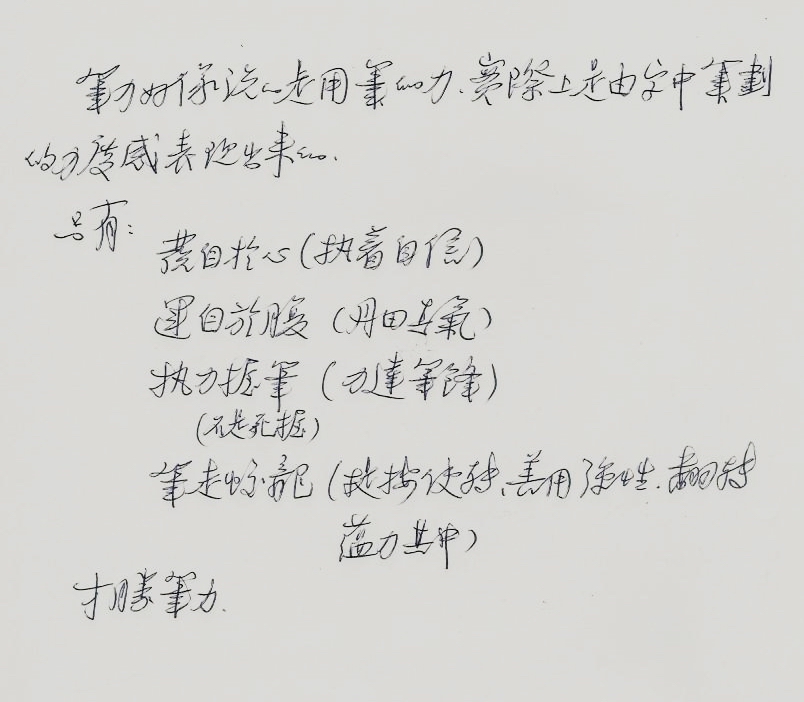 筆力好像说的是用筆的力、實際上是由字中筆劃
的力度感表现出来的.
只有:
發自於心(执着自信)
運自於腹(丹田其氣)
执力握筆(力達筆鋒)
(不是死握)
筆走蛇龍(提按使转、善用弹性.翻转
蕴力其中)
才勝筆力.